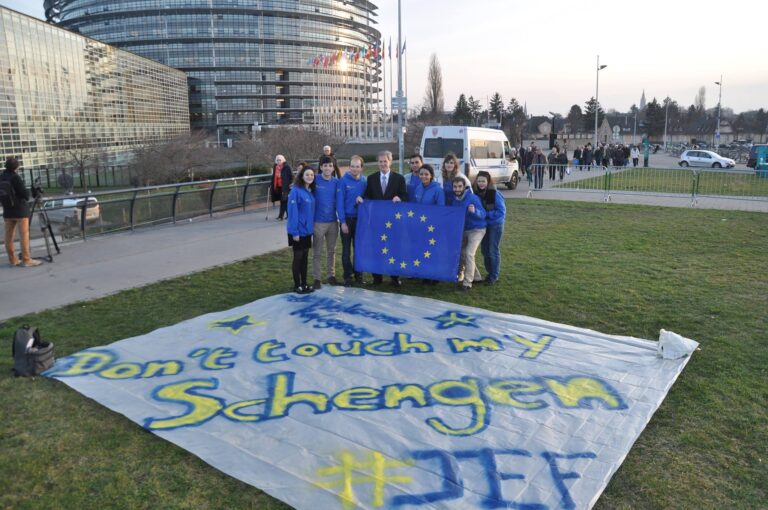 Welcome
Don't touch my
Schengen
#JEF